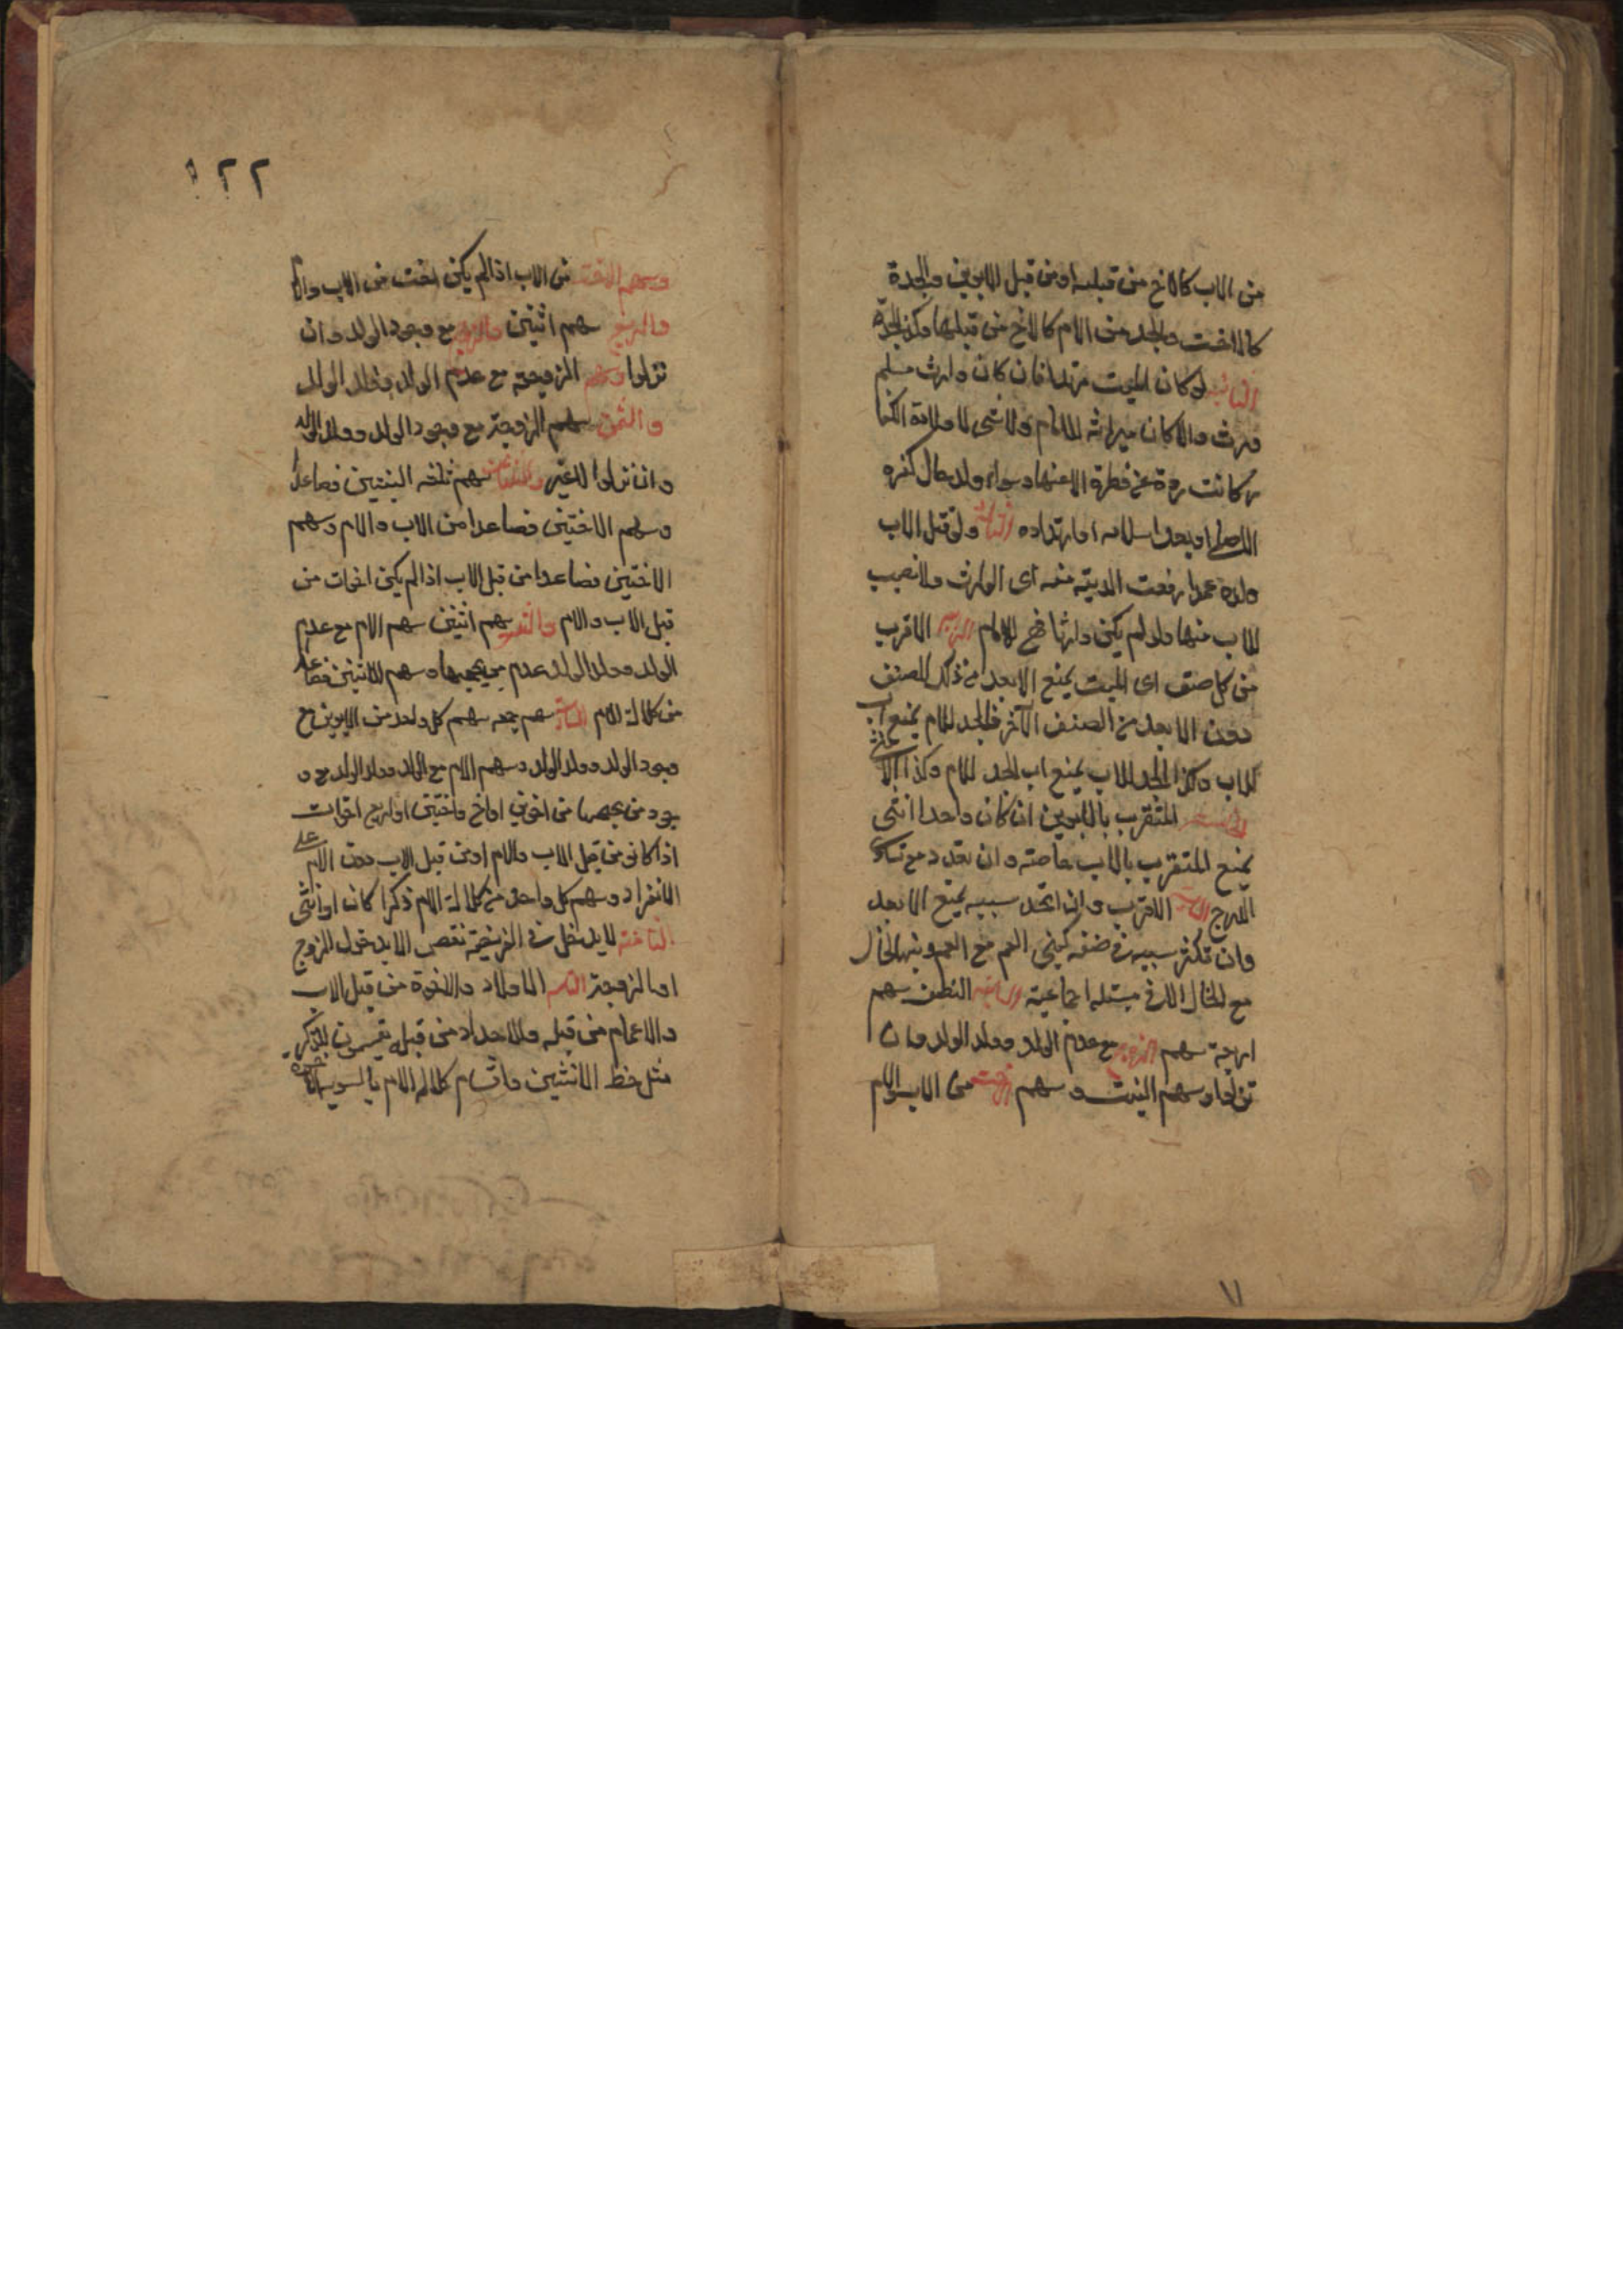 من الاب كالاخ من قبله او من قبل الابوين والجدة
كالاخت والجد من الام كالاخ من قبلها وكذا الجدة
الثانية لو كان الميت مرتدا فان كان وارث مسلم
ورث والا كان ميراثه للامام ولا شى لاولاده الكفا
ر كانت ردة عن فطرة الاعنها وسواء ولد حال كفره
الاصلى او بعد اسلامه او ارتداده الثالثة ولو قتل الاب
ولده عمدا رفعت الدية منه الى الوارث ولا نصيب
للاب منها ولو لم يكن وارثا فهى للامام الرابعة الاقرب
من كل صنف الى الميت يمنع الابعد من ذلك الصنف
دون الابعد من الصنف الآخر فالجد للام يمنع اب
الاب وكذا الجد للاب يمنع اب الجد للام وكذا الا
الخامسة المتقرب بالابوين ان كان واحدا انثى
يمنع المتقرب بالاب خاصته وان تعدد مع تساو
الدرج السادسة الاقرب وان اتحد سببه يمنع الابعد
وان تكثر سببه فى صنفه كبنى العم مع العم وبنى الخال
مع الخال الا فى مسئله اجماعية السابعة النصف سهم
اربعة سهم الزوج مع عدم الولد وولد الولد وان
نزلوا وسهم البنت وسهم الاخت من الاب والام
٢٢
وسهم الاخت من الاب اذا لم يكن اخت من الاب والام
والربع سهم اثنين الزوج مع وجود الولد وان
نزلوا وسهم الزوجة مع عدم الولد وولد الولد
والثمن سهم الزوجة مع وجود الولد وولد الولد
وان نزلوا لا غير والثلثان سهم ثلثه البنتين فصاعدا
وسهم الاختين فصاعدا من الاب والام وسهم
الاختين فصاعدا من قبل الاب اذا لم يكن اخوات من
قبل الاب والام والثلث سهم اثنين سهم الام مع عدم
الولد وولد الولد عدم من يحجبها وسهم الاثنين فصاعدا
من كلالة الام السدس سهم سهم كل واحد من الابوين مع
وجود الولد وولد الولد وسهم الام مع الولد وولد الولد مع و
جود من يحجبها من اخوين او اخ واختين او اربع اخوات
اذا كانو من قبل الاب والام او من قبل الاب دون الام على
الانفراد وسهم كل واحد من كلالة الام ذكرا كان او انثى
الثامنة لا يدخل فى الفريضة نقص الا بدخول الزوج
او الزوجة التاسعة الاولاد والاخوة من قبل الاب
والاعمام من قبله والاجداد من قبله يقتسمون للذكر
مثل حظ الانثيين واقسام كلاله الام بالسويه